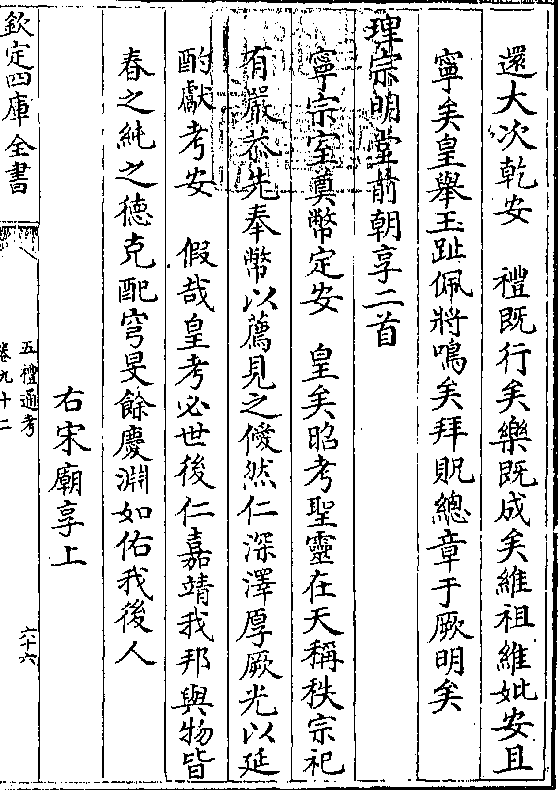 還大次乾安　禮既行矣樂既成矣維祖維妣安且
寧矣皇舉玉趾佩將鳴矣拜貺總章于厥明矣
理宗明堂前朝享二首
寧宗室奠幣定安　皇矣昭考聖靈在天稱秩宗祀
有嚴恭先奉幣以薦見之僾然仁深澤厚厥光以延
酌獻考安　假哉皇考必世後仁嘉靖我邦與物皆
春之純之德克配穹旻餘慶淵如佑我後人
右宋廟享上
欽定四庫全書
五禮通考
卷九十二
六十六